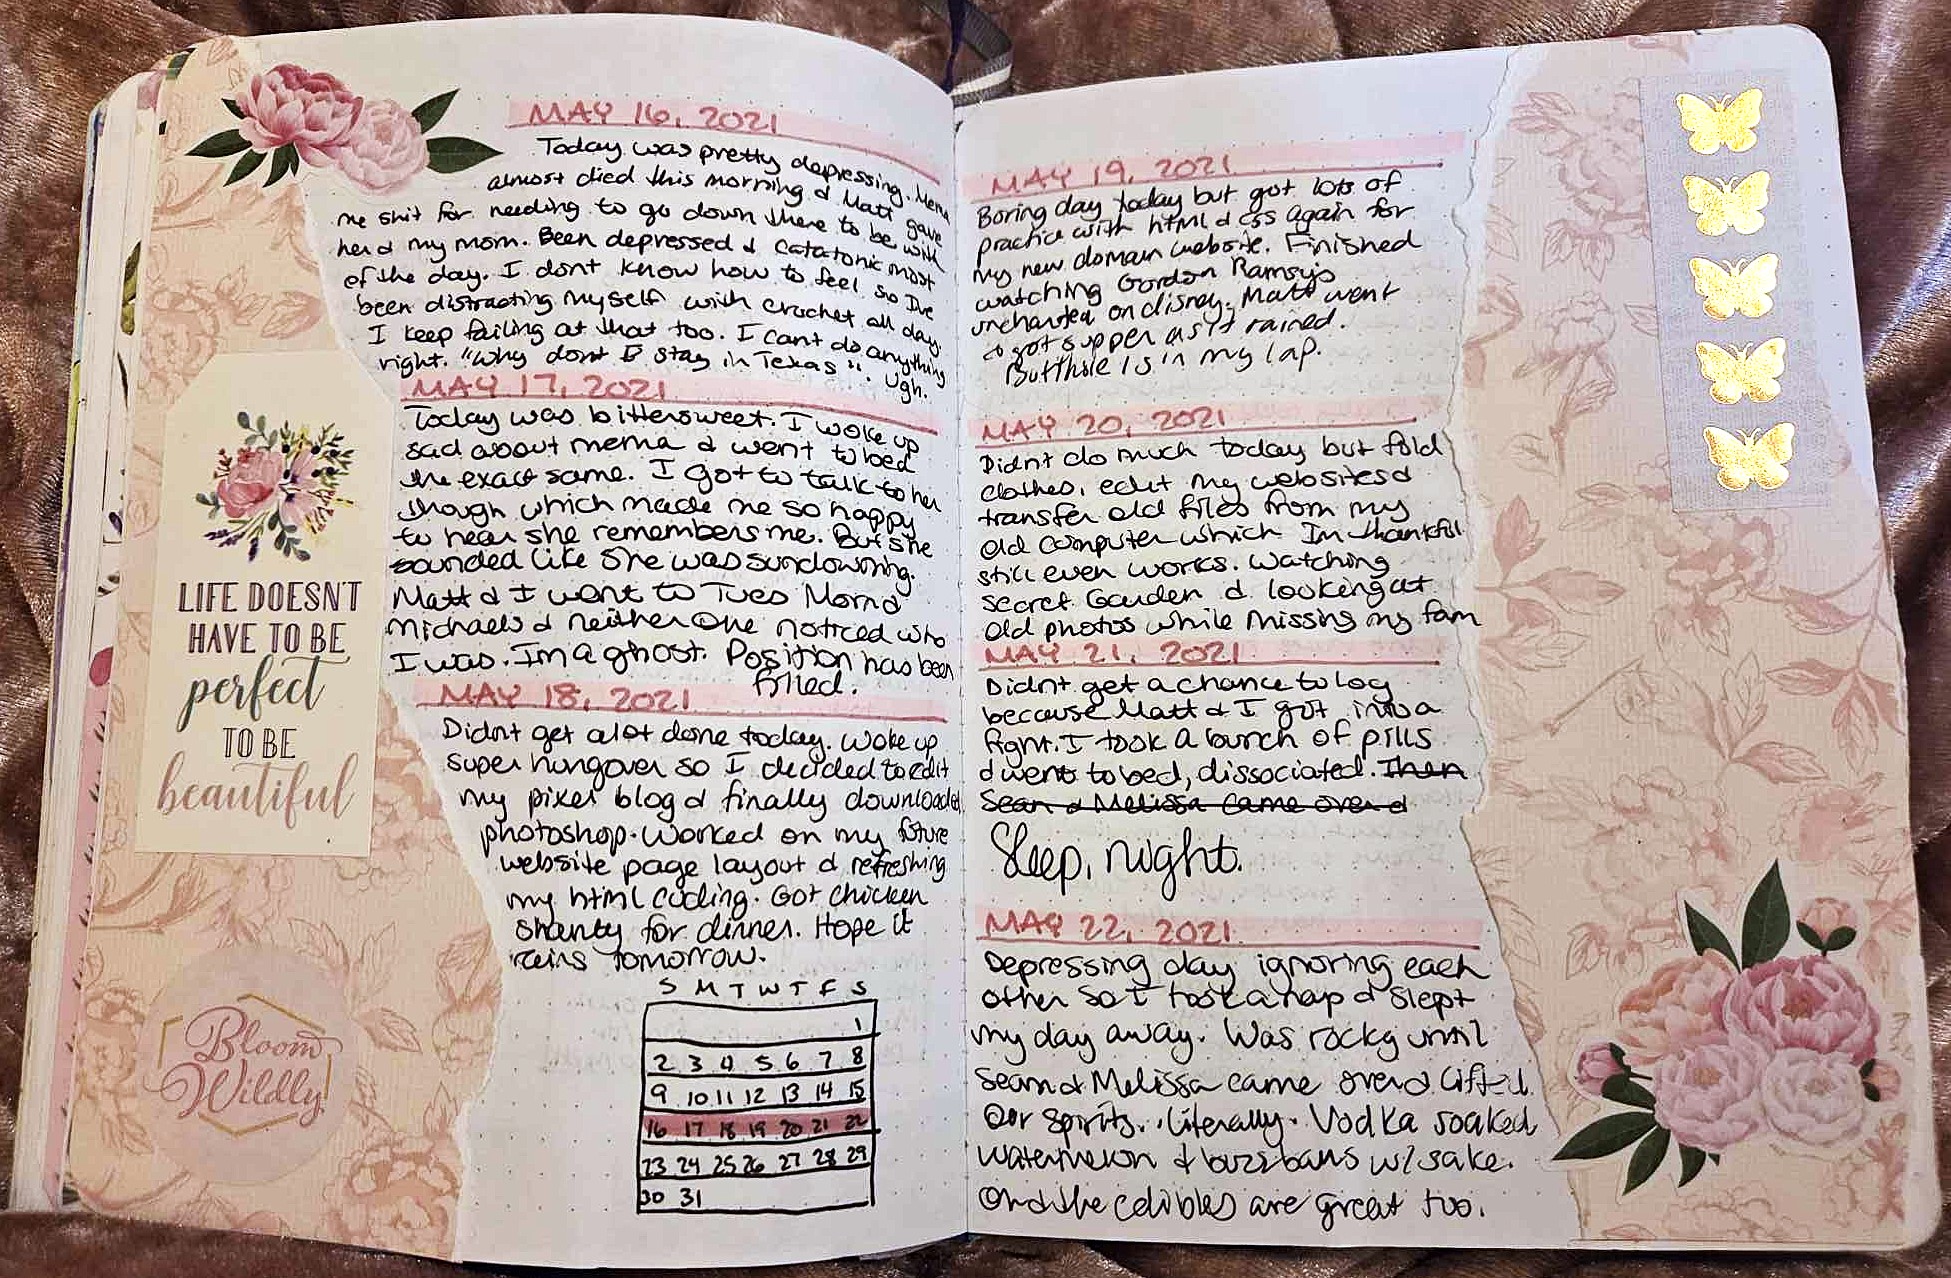 MAY 16, 2021
Today was pretty depressing. Mema
almost died this morning & Matt gave
me shit for needing to go down there to be with
her & my mom. Been depressed & catatonic most
of the day. I dont know how to feel so I've
been distracting myself with crochet all day.
I keep failing at that too. I cant do anything
right. "Why dont I stay in Texas". Ugh.
MAY 17, 2021
Today was bittersweet. I woke up
sad about mema & went to bed
the exact same. I got to talk to her
though which made me so happy
to hear she remembers me. But she
sounded like she was sundowning.
Matt & I went to Tues Morn &
Michaels & neither one noticed who
I was. Im a ghost. Position has been
filled.
MAY 18, 2021
Didnt get alot done today. Woke up
super hungover so I decided to edit
my pixel blog & finally downloaded
photoshop. Worked on my future
website page layout & refreshing
my html coding. Got chicken
shanty for dinner. Hope it
rains tomorrow.
S M T W T F S
1
2 3 4 5 6 7 8
9 10 11 12 13 14 15
16 17 18 19 20 21 22
23 24 25 26 27 28 29
30 31
LIFE DOESN'T
HAVE TO BE
perfect
TO BE
beautiful
Bloom
Wildly
MAY 19, 2021
Boring day today but got lots of
practice with html & css again for
my new domain website. Finished
watching Gordon Ramsys
uncharted on disney. Matt went
& got supper as it rained.
Butthole is in my lap.
MAY 20, 2021
Didnt do much today but fold
clothes, edit my websites &
transfer old files from my
old computer which Im thankful
still even works. Watching
Secret Garden & looking at
old photos while missing my fam
MAY 21, 2021
Didnt get a chance to log
because Matt & I got into a
fight. I took a bunch of pills
& went to bed, dissociated. Then
Sean & Melissa came over &
Sleep, night.
MAY 22, 2021
Depressing day ignoring each
other so I took a nap & slept
my day away. Was rocky until
Sean & Melissa came over & lifted
our spirits.. literally. Vodka soaked
watermelon & buzzballs w/ sake.
And the edibles are great too.